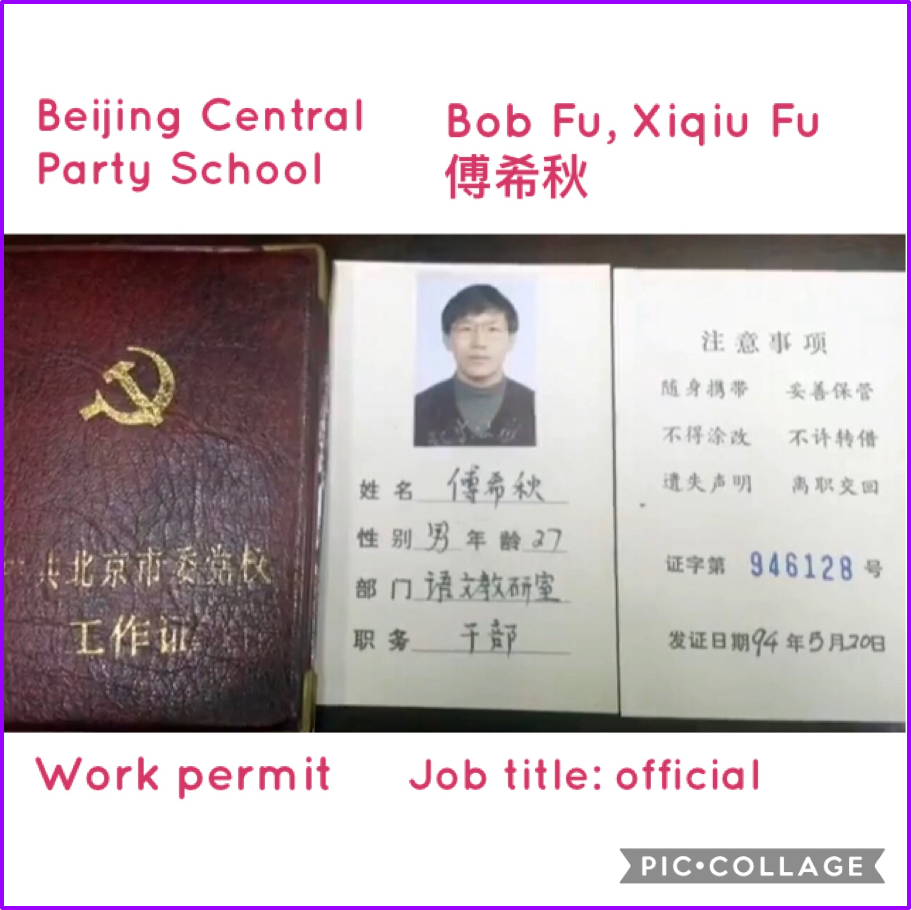 Beijing Central
Party School
Bob Fu, Xiqiu Fu
傅希秋
中共北京市委党校
工作证
姓名 傅希秋
性别 男 年龄 27
部门 语文教研室
职务 干部
注意事项
随身携带 妥善保管
不得涂改 不许转借
遗失声明 离职交回
证字第 946128 号
发证日期94年5月20日
Work permit
Job title: official
PIC•COLLAGE